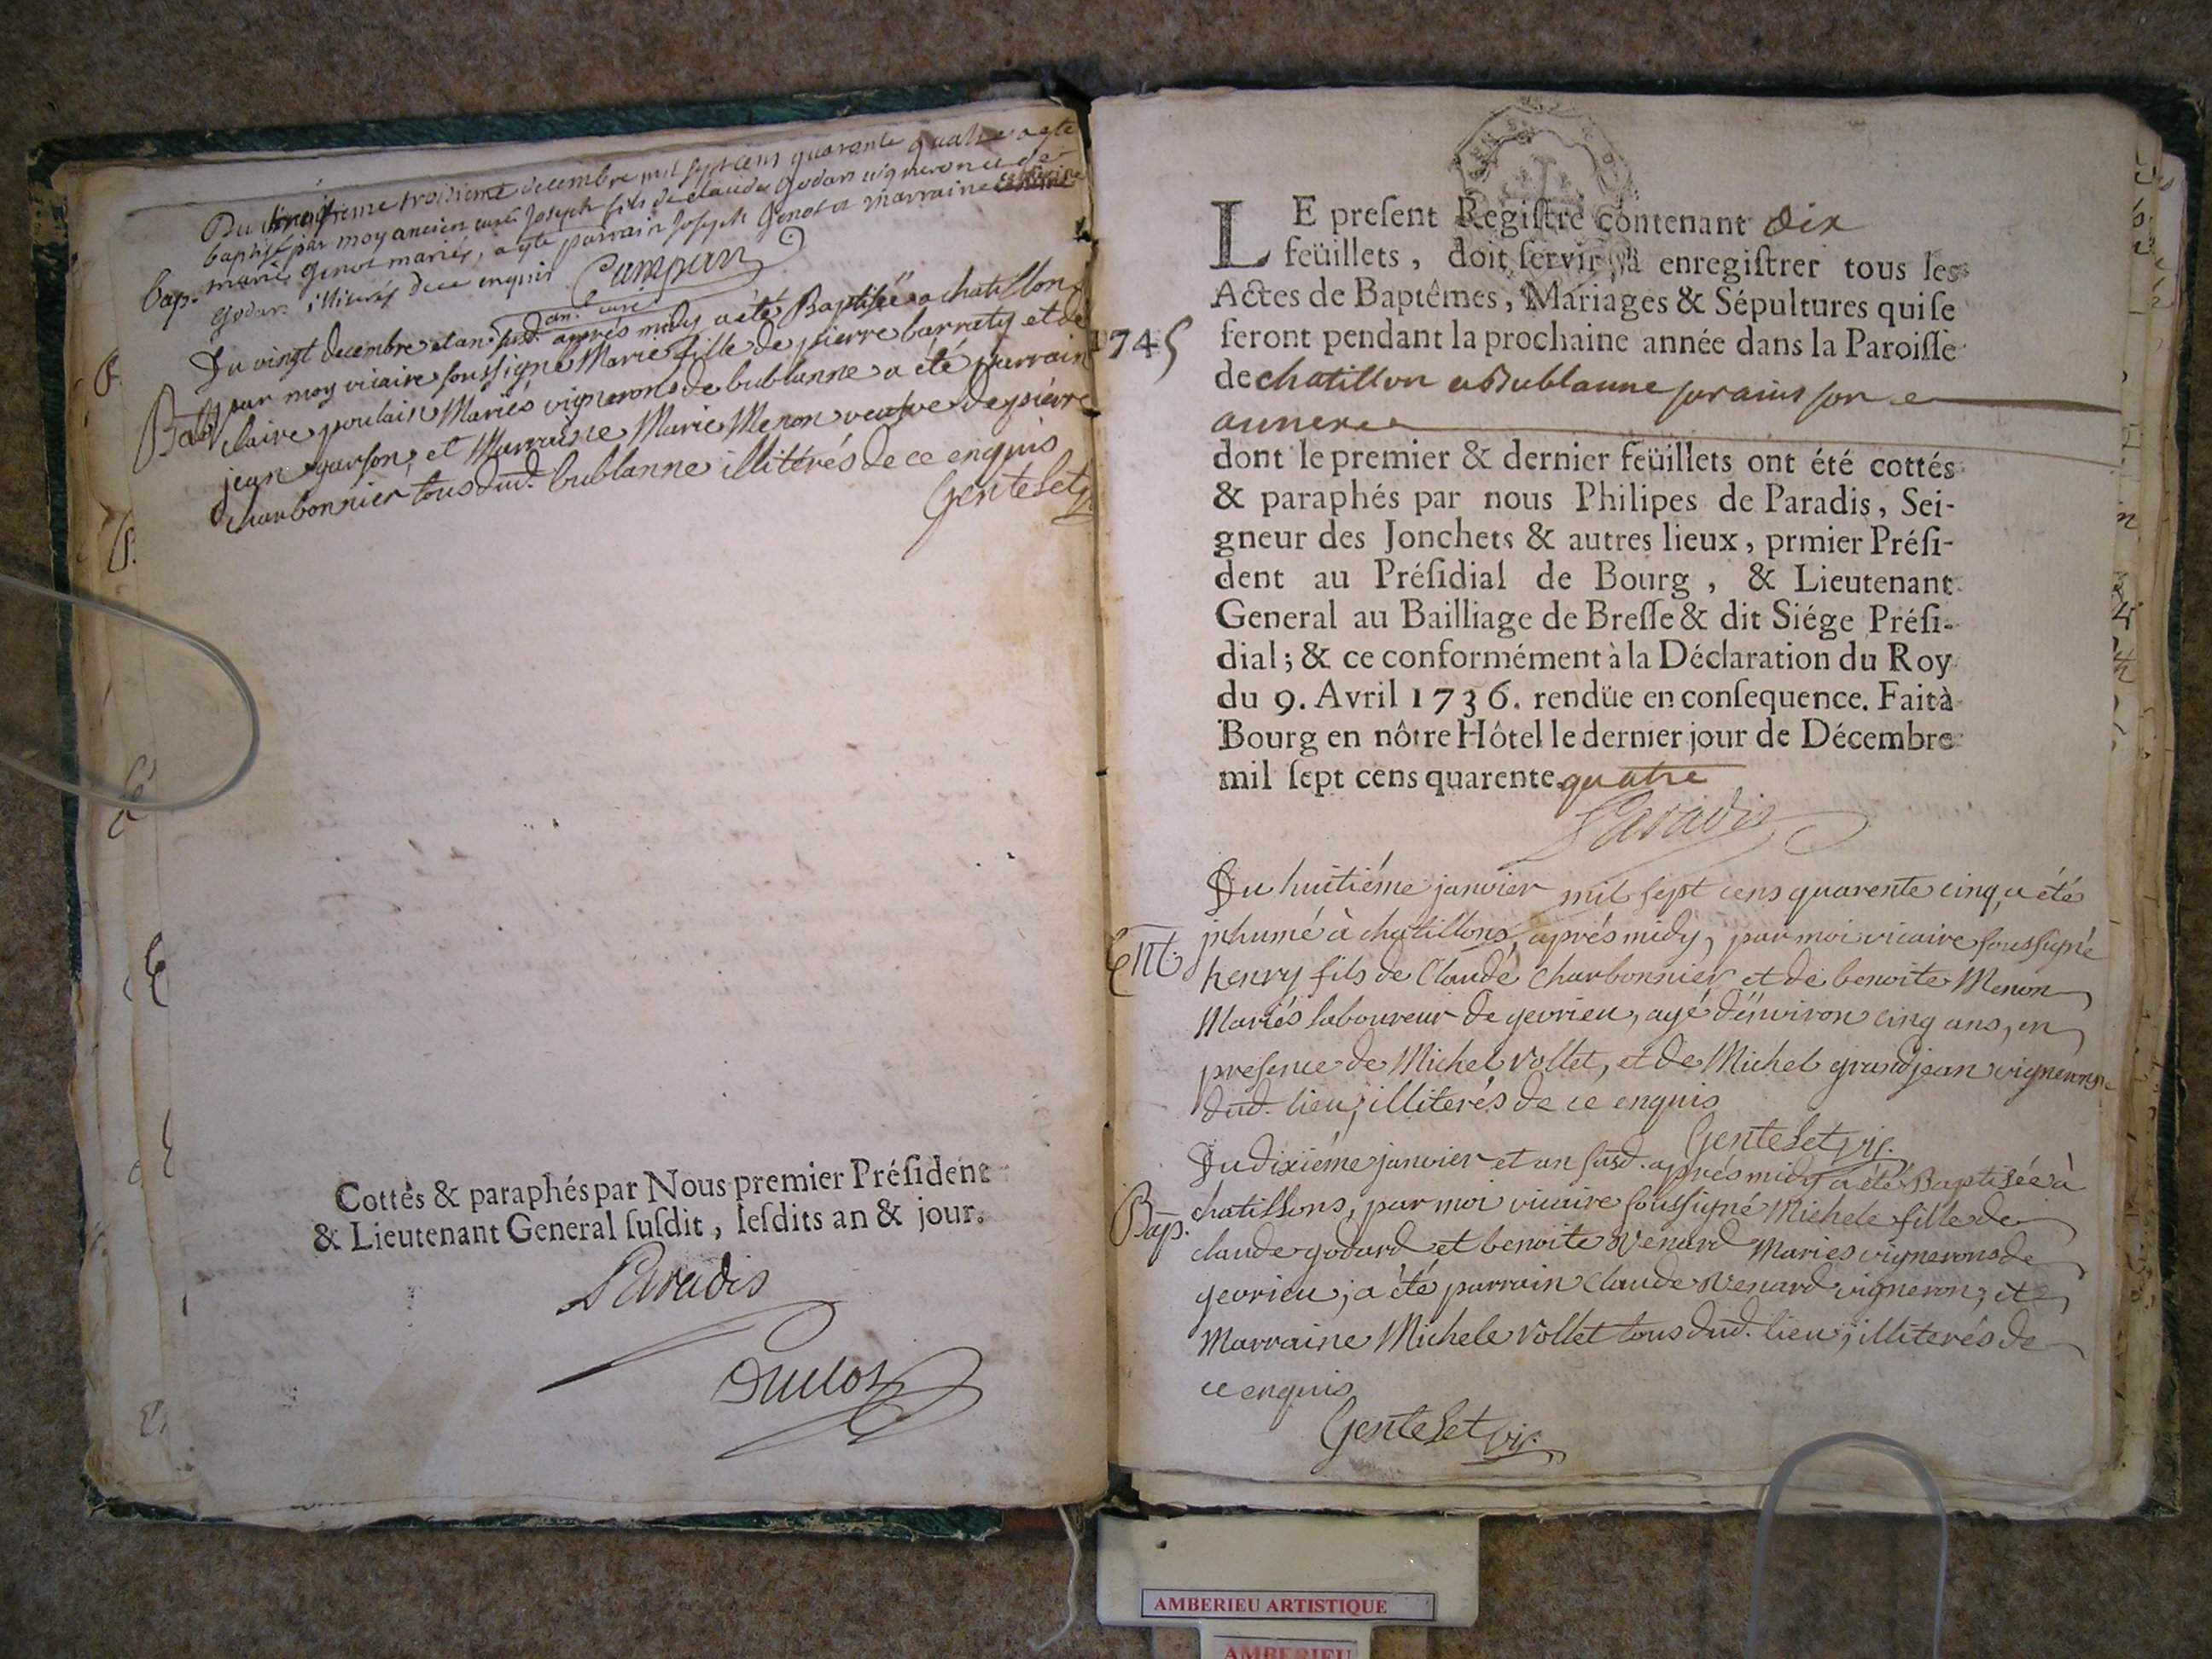 Du troisieme decembre mil sept cens quarente quatre a eté
baptisé par moy ancien curé Joseph fils de claude godar vigneron et de
Bap. marie genot mariés, a eté parrain Joseph genot et marraine
godar illiterés de ce enquis Campan
an. curé
Du vingt decembre et an susd. aprés midy a été Baptisée a chatillon
par moy vicaire soussigné Marie fille de pierre barraty et de
Bap. claire poulain Mariés vignerons de bublanne a été parrain
jean garson, et Marraine Marie Menon veufve de pierre
charbonnier tous dud. bublanne illitérés de ce enquis
Gentelet
Cottés & paraphés par Nous premier Préſident
& Lieutenant General ſuſdit, leſdits an & jour.
Paradis
Duclos
LE preſent Regiſtre contenant dix
feüillets, doit ſervir à enregiſtrer tous les
Actes de Baptêmes, Mariages & Sépultures qui ſe
1745 feront pendant la prochaine année dans la Paroiſſe
de chatillon a Bublanne son
annexe
dont le premier & dernier feüillets ont été cottés
& paraphés par nous Philipes de Paradis, Sei-
gneur des Jonchets & autres lieux, prmier Préſi-
dent au Préſidial de Bourg, & Lieutenant
General au Bailliage de Breſſe & dit Siége Préſi-
dial; & ce conformément à la Déclaration du Roy
du 9. Avril 1736. rendüe en conſequence. Fait à
Bourg en nôtre Hôtel le dernier jour de Décembre
mil ſept cens quarente quatre
Paradis
Du huitiéme janvier mil sept cens quarente cinq, a été
jnhumé à chatillons, aprés midy, par moi vicaire soussigné
Ent. henry fils de Claude Charbonnier et de benoite Menon
Mariés laboureur de gevrieu, agé d'environ cinq ans, en
presence de Michel Vollet, et de Michel grandjean vignerons
dud. lieu, illiterés de ce enquis
Gentelet vic.
Du dixiéme janvier et an susd. aprés midy a été Baptisée à
Bap. chatillons, par moi vicaire soussigné Michele fille de
claude godard et benoite Venard Mariés vignerons de
gevrieu; a été parrain Claude Venard vigneron, et
Marraine Michele Vollet tous dud. lieu, illiterés de
ce enquis
Gentelet vic.
AMBERIEU ARTISTIQUE
AMBERIEU